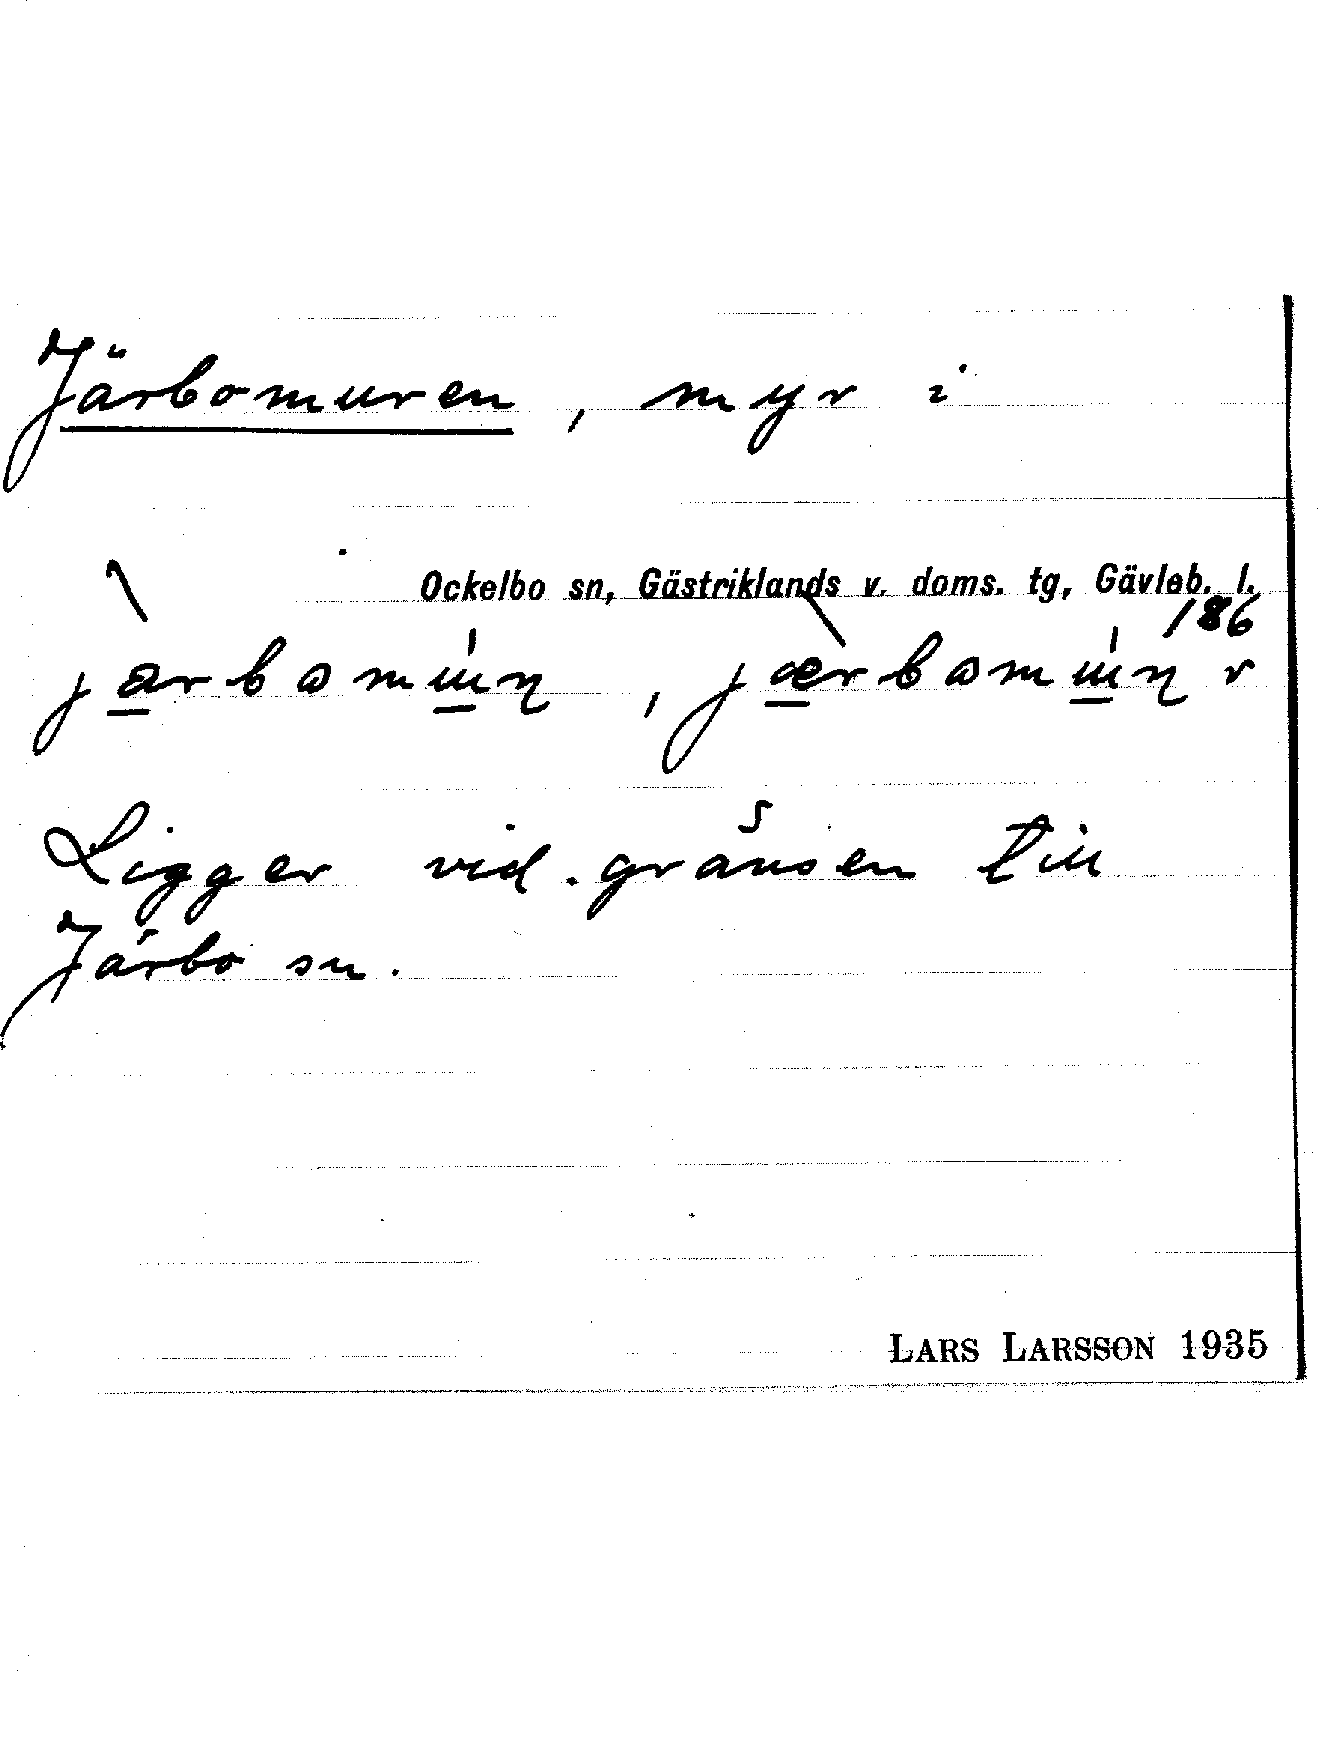 Järbomuren, myr i
Ockelbo sn, Gästriklands v. doms. tg, Gävleb. l.
186
Ligger vid gränsen till
Järbo sn.
LARS LARSSON 1935